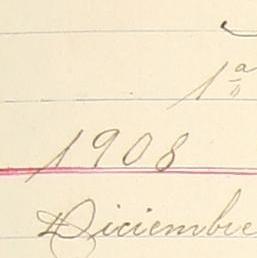 1ª
1908
Diciembre